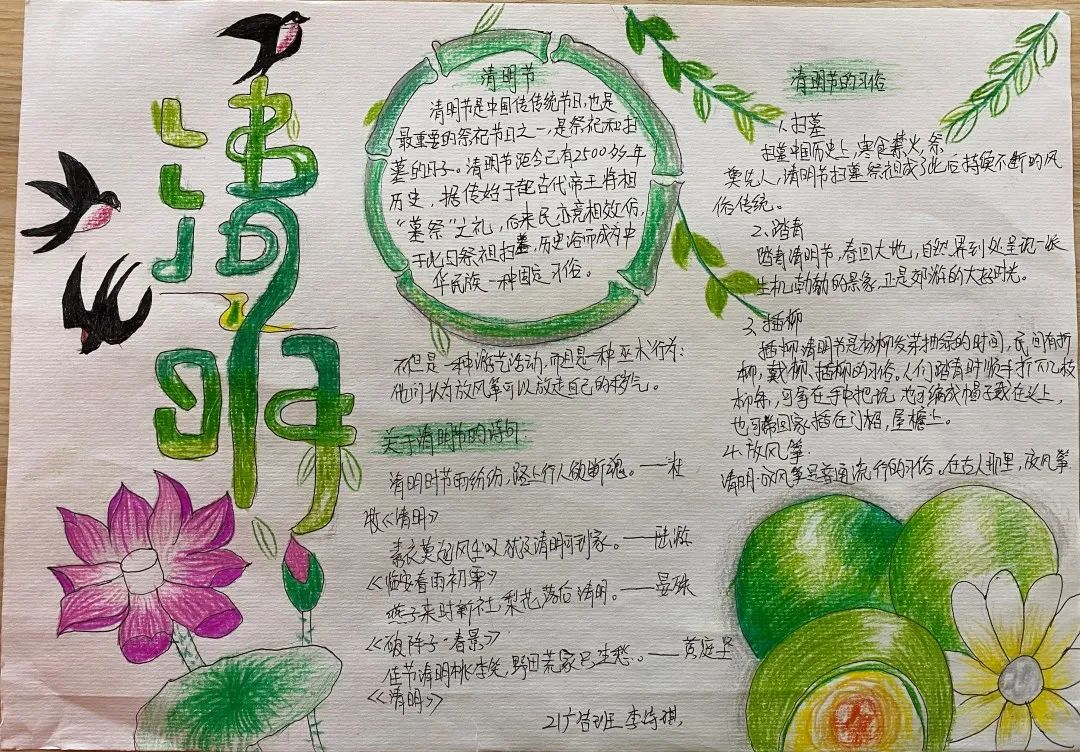 清明
清明节
清明节是中国传传统节日,也是
最重要的祭祀节日之一,是祭祀和扫
墓的日子。清明节距今已有2500多年
历史,据传始于古代帝王将相
“墓祭”之礼,后来民亦竞相效仿,
于此日祭祖扫墓,历史沿而成为中
华民族一种固定习俗。
不但是一种游艺活动,而且是一种巫术行为:
他们认为放风筝可以放走自己的秽气。
关于清明节的诗句
清明时节雨纷纷,路上行人欲断魂。——杜
牧《清明》
素衣莫起风尘叹,犹及清明可到家。——陆游
《临安春雨初霁》
燕子来时新社,梨花落后清明。——晏殊
《破阵子·春景》
佳节清明桃李笑,野田荒冢只生愁。——黄庭坚
《清明》
21广告班 李诗琪
清明节的习俗
1.扫墓
扫墓中国历史上,寒食禁火,祭
奠先人,清明节扫墓祭祖成了此后持续不断的风
俗传统。
2、踏青
踏青清明节,春回大地,自然界到处呈现一派
生机勃勃的景象,正是郊游的大好时光。
3、插柳
插柳清明节是杨柳发芽抽绿的时间,民间有折
柳、戴柳、插柳的习俗。人们踏青时顺手折下几枝
柳条,可拿在手中把玩,也可编成帽子戴在头上,
也可带回家插在门楣、屋檐上。
4.放风筝
清明·放风筝是普遍流行的习俗。在古人那里,放风筝